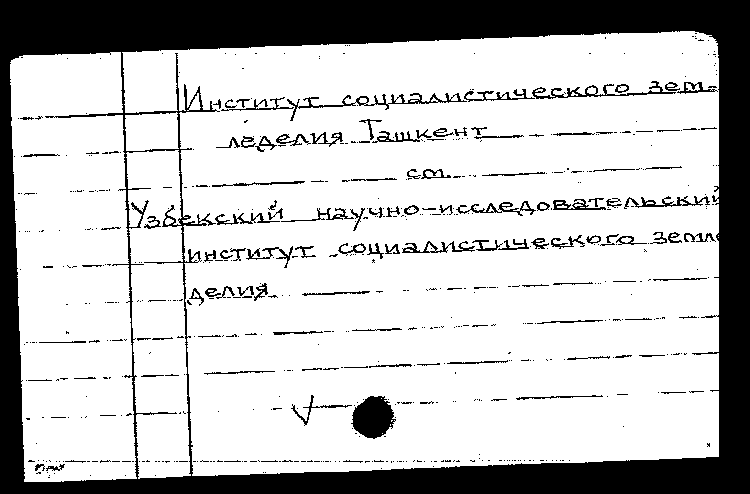 Институт социалистического зем-
леделия Ташкент
см.
Узбекский научно-исследовательский
институт социалистического земле
делия